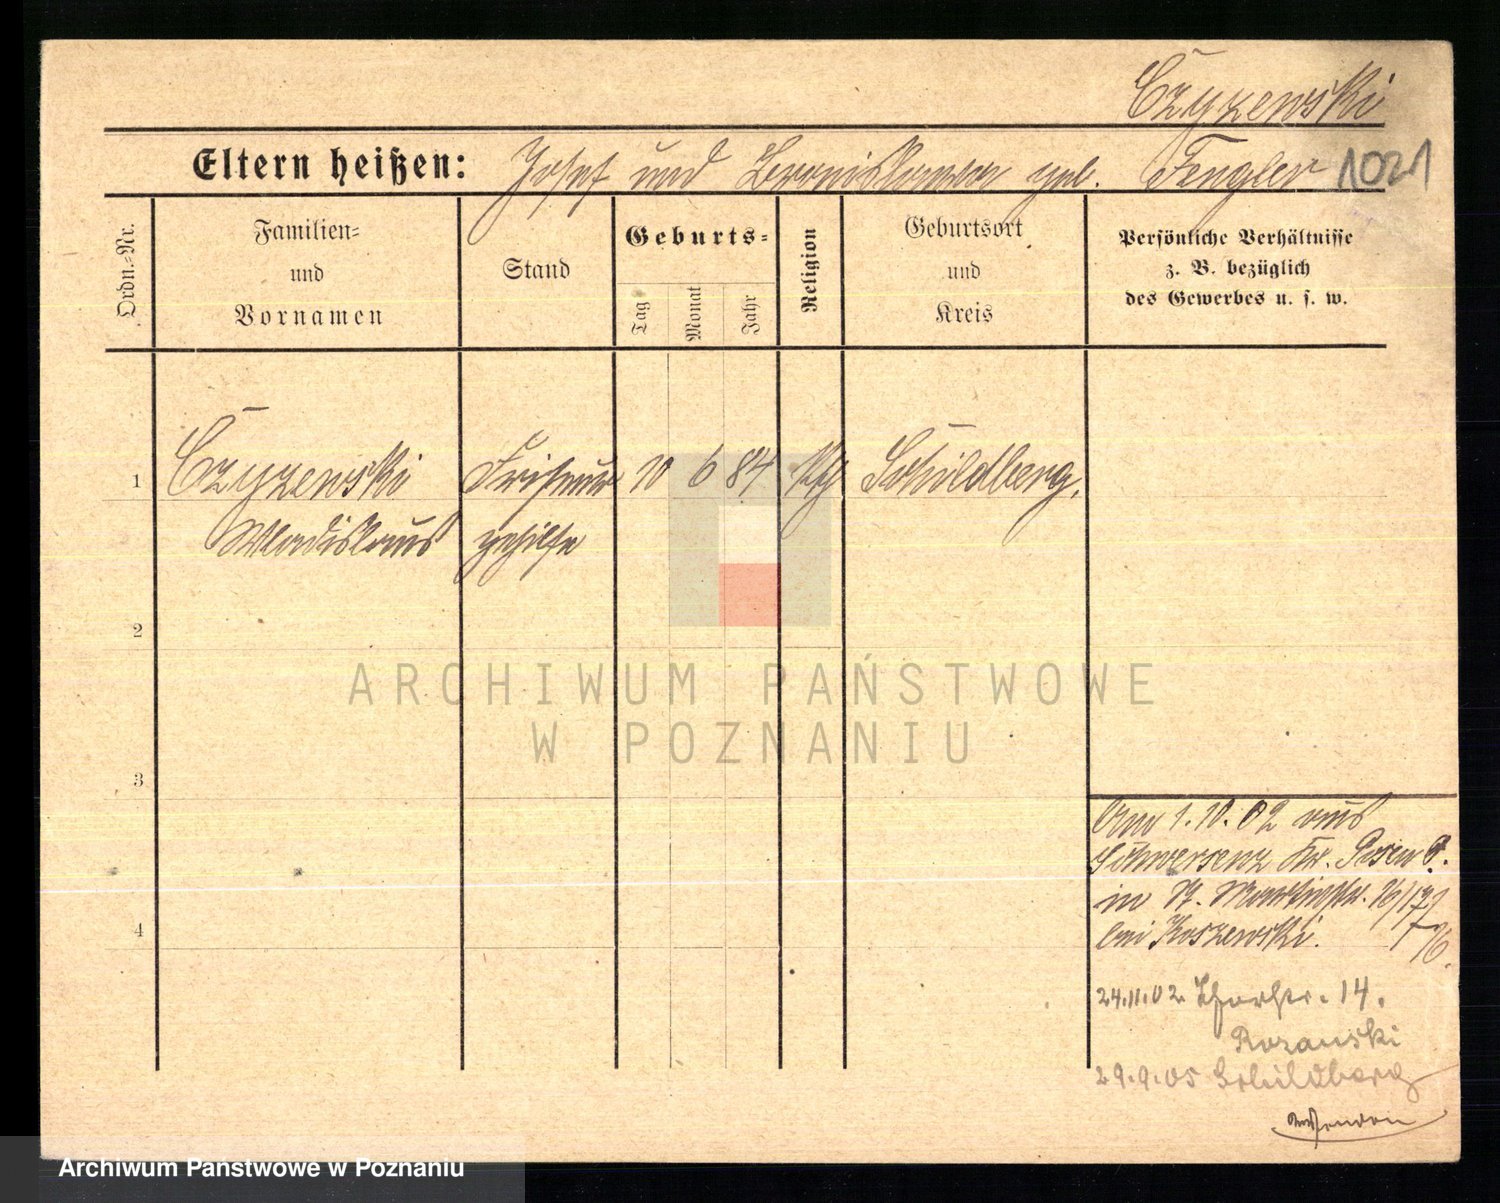 Czyzewski
Eltern heißen: Josef und Bronislawa geb. Fengler 1021
Ordn.-Nr.
Familien-
und
Vornamen
Stand
Geburts-
Tag
Monat
Jahr
Religion
Geburtsort
und
Kreis
Persönliche Verhältnisse
z. B. bezüglich
des Gewerbes u. s. w.
1 Czyzewski Friseur 10 6 84 kth Schildberg.
Wladislaus gehilfe
2
ARCHIWUM PAŃSTWOWE
W POZNANIU
3
Am 1.10.02 aus
Schwersenz Kr. Posen O.
in St. Martinstr. 16/17
bei Koszewski.
4
24.11.02 14.
Rozanski
29.9.05 Schildberg
Archiwum Państwowe w Poznaniu